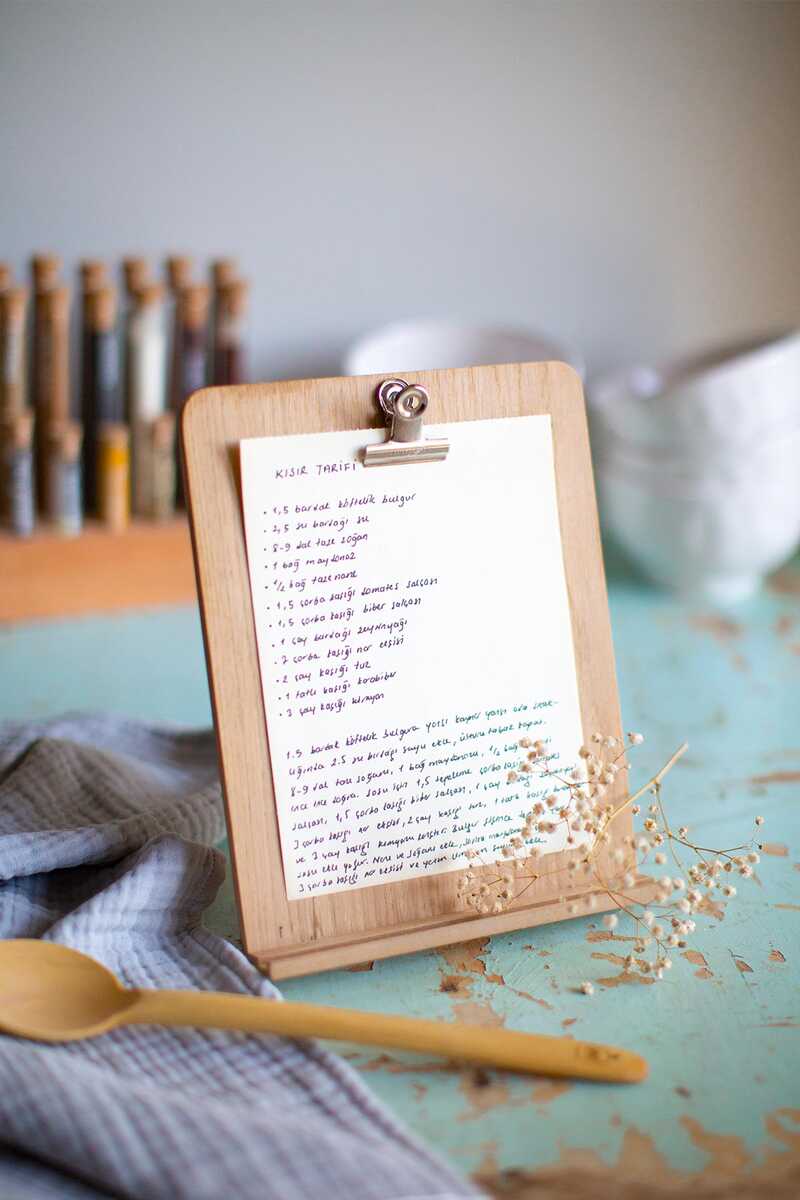 KISIR TARİFİ
• 1,5 bardak köftelik bulgur
• 2,5 su bardağı su
• 8-9 dal taze soğan
• 1 bağ maydonoz
• 1/2 bağ taze nane
• 1,5 çorba kaşığı domates salçası
• 1,5 çorba kaşığı biber salçası
• 1 çay bardağı zeytinyağı
• 3 çorba kaşığı nar ekşisi
• 2 çay kaşığı tuz
• 1 tatlı kaşığı karabiber
• 3 çay kaşığı kimyon
1.5 bardak köftelik bulgura yarısı kaynar yarısı oda sıcak-
lığında 2.5 su bardağı suyu ekle, üstünü kapat.
8-9 dal taze soğanı, 1 bağ maydonozu, 1/2 bağ
ince ince doğra. Sosu için 1,5 tepeleme çorba kaşığı domates
salçası, 1,5 çorba kaşığı biber salçası, 1 çay bardağı
3 çorba kaşığı nar ekşisi, 2 çay kaşığı tuz, 1 tatlı kaşığı
ve 3 çay kaşığı kimyonu karıştır. Bulgur şişince
sosu ekle yoğur. Nane ve soğanı ekle,
3 çorba kaşığı nar ekşisi ve yarım limonun suyunu ekle.